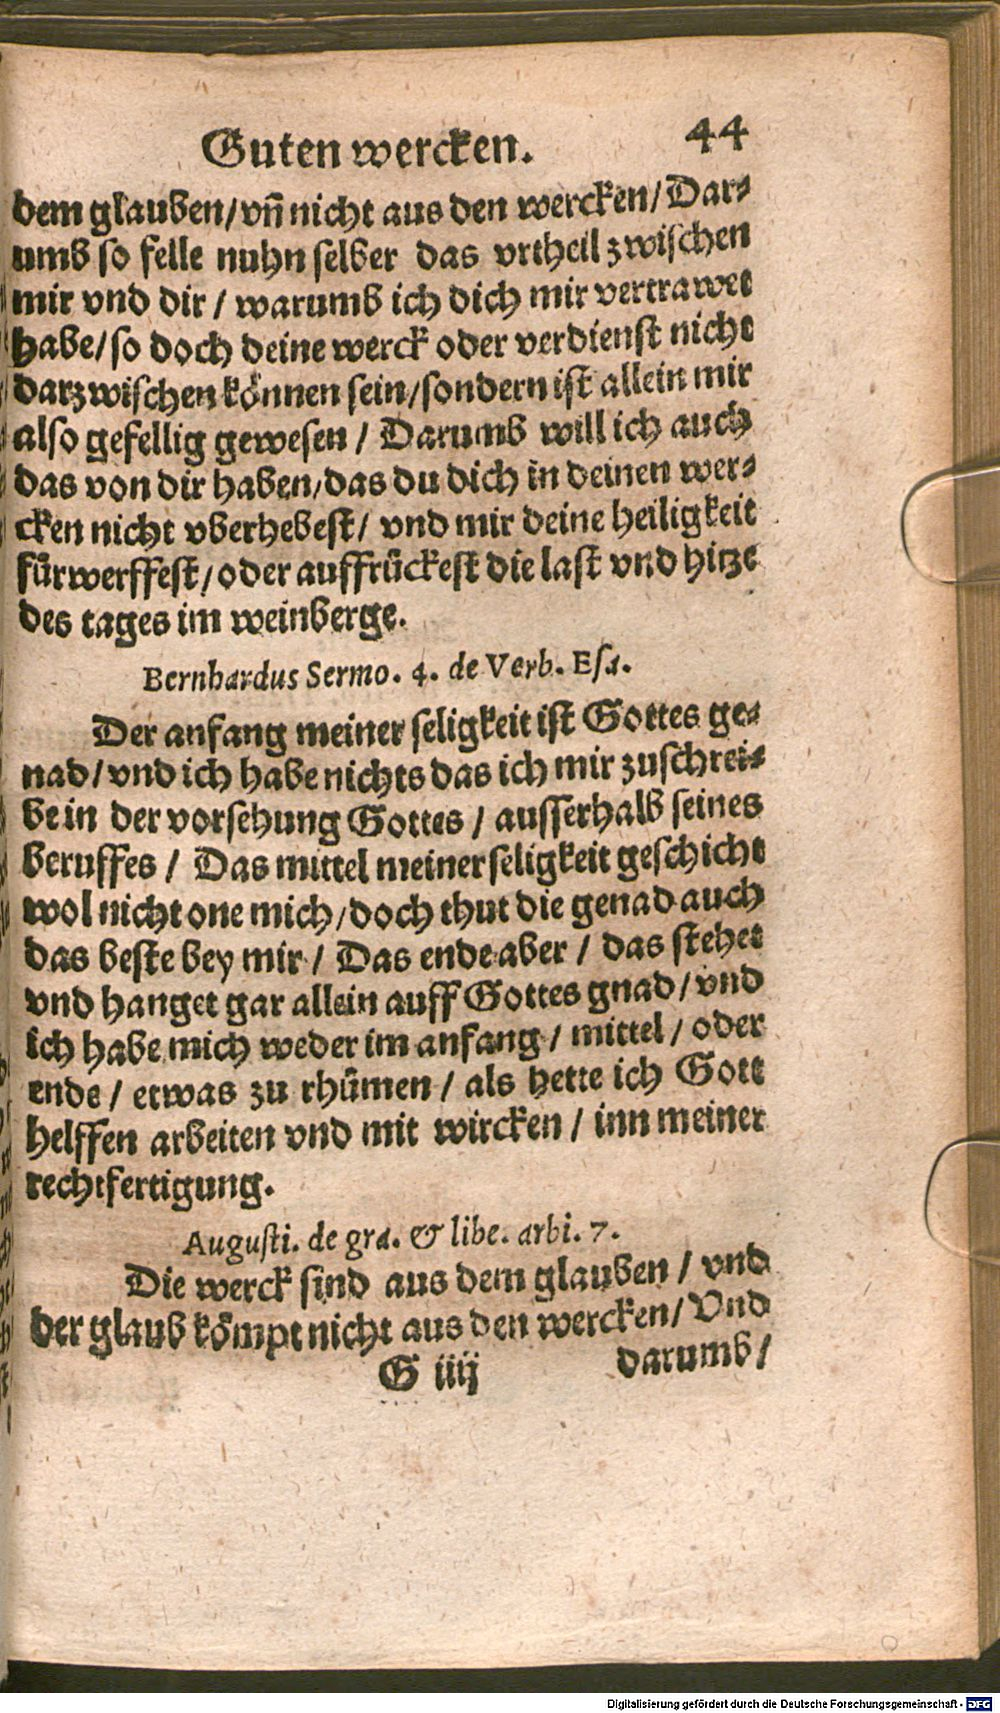 Guten wercken. 44
dem glauben/ vñ nicht aus den wercken/ Dar⸗
umb so felle nuhn selber das vrtheil zwischen
mir vnd dir / warumb ich dich mir vertrawet
habe/ so doch deine werck oder verdienst nicht
darzwischen können sein/ sondern ist allein mir
also gefellig gewesen / Darumb will ich auch
das von dir haben/ das du dich in deinen wer⸗
cken nicht vberhebest/ vnd mir deine heiligkeit
fürwerffest/ oder auffrückest die last vnd hitze
des tages im weinberge.
Bernhardus Sermo. 4. de Verb. Esa.
Der anfang meiner seligkeit ist Gottes ge⸗
nad/ vnd ich habe nichts das ich mir zuschrei⸗
be in der vorsehung Gottes / ausserhalb seines
beruffes / Das mittel meiner seligkeit geschicht
wol nicht one mich/ doch thut die genad auch
das beste bey mir / Das ende aber / das stehet
vnd hanget gar allein auff Gottes gnad/ vnd
ich habe mich weder im anfang / mittel / oder
ende / etwas zu rhümen / als hette ich Gott
helffen arbeiten vnd mit wircken / inn meiner
rechtfertigung.
Augusti. de gra. & libe. arbi. 7.
Die werck sind aus dem glauben / vnd
der glaub kömpt nicht aus den wercken/ Vnd
G iiij darumb/
Digitalisierung gefördert durch die Deutsche Forschungsgemeinschaft - DFG